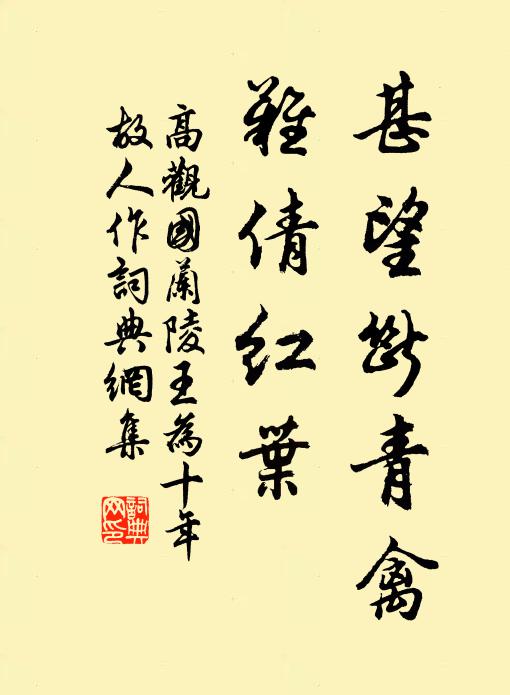 甚望斷青禽
難倩紅葉
高觀國蘭陵王為十年
故人作詞典網集
詞典网印